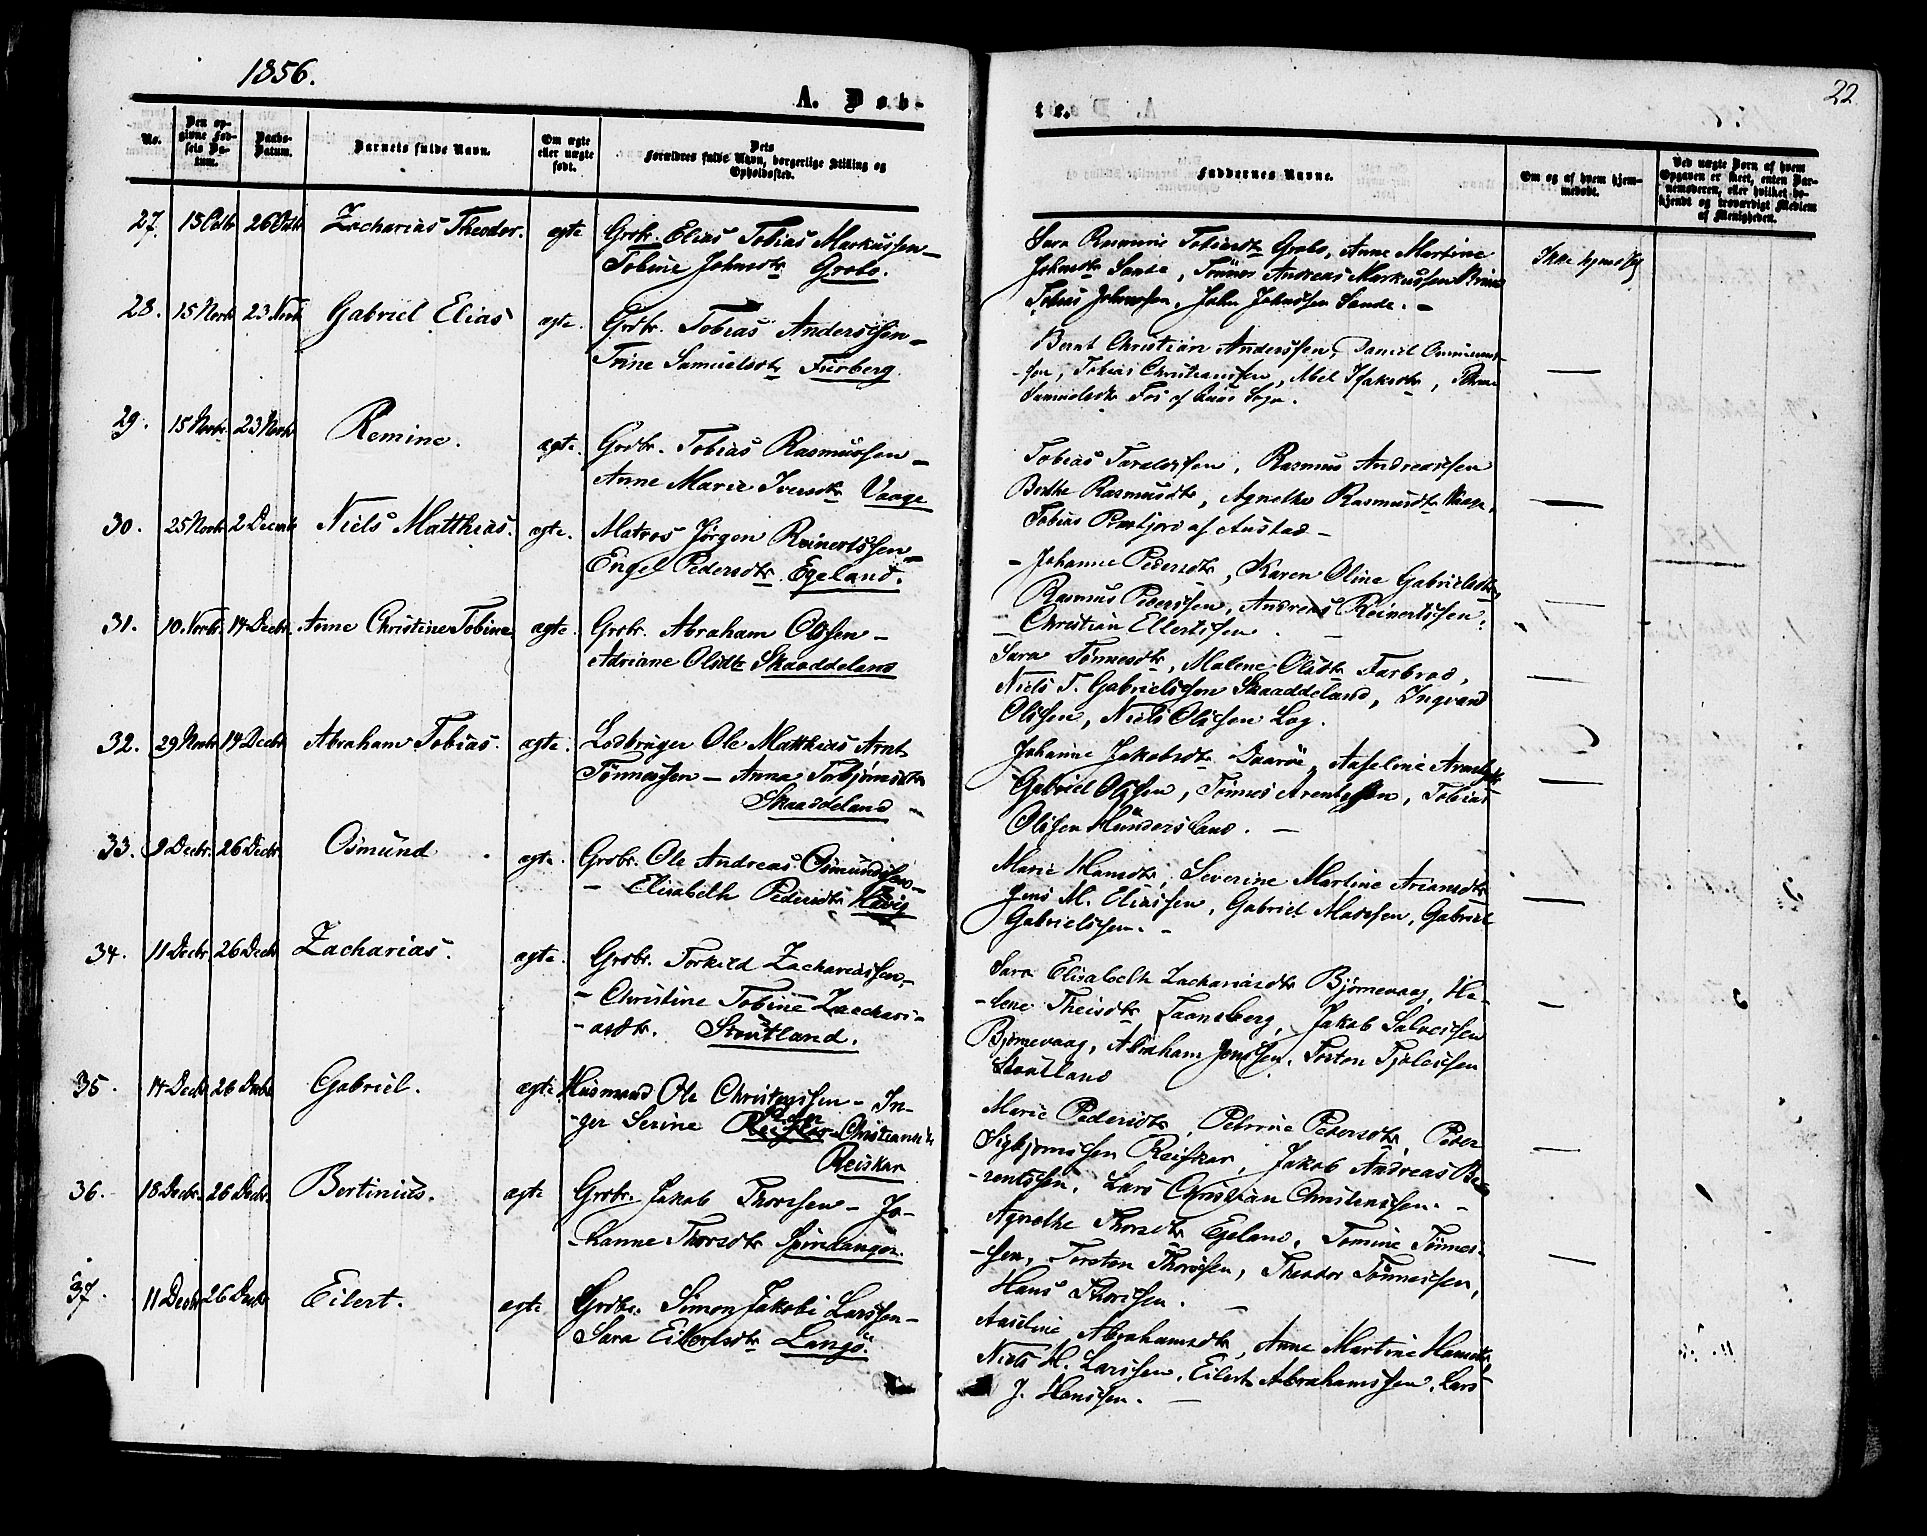 1856.
22
A. Døb-
te.
No.
Den op-
givne Fød-
sels Da-
tum.
Daabs-
Datum.
Barnets fulde Navn.
Om ægte
eller uægte
født.
Dets
Forældres fulde Navn, borgerlige Stilling og
Opholdssted.
Faddernes Navne.
Om og af hvem hjem-
medøbt.
Ved uægte Børn af hvem
Opgaven er skeet, enten Bar-
nemoderen, eller hvilket be-
kjendt og troværdigt Medlem
af Menigheden.
27. 13 Octbr 26 Octbr Zacharias Theodor. ægte Grdbr. Elias Tobias Markussen –
Tobine Johnsdtr Grobo.
Sara Rasmine Tobiasdtr Grobo, Anne Martine
Johnsdtr Sande, Tönnes Andreas Markussen
Tobias Johnssen, John Johnssen Sande. –
Ikke hjemdøbt
28. 15 Novbr 23 Novbr Gabriel Elias ægte. Grdbr. Tobias Anderssen –
Trine Samuelsdtr Furberg.
Bernt Christian Anderssen, Daniel Ommund-
-sen, Tobias Christianssen, Abel Isaksdtr,
Samuelsdtr Fos af Sogn. –
29. 15 Novbr 23 Novbr Remine. ægte. Grdbr. Tobias Rasmussen –
Anne Marie Iversdtr Vaage
Tobias Taraldssen, Rasmus Andreassen
Berthe Rasmusdtr, Agnethe Rasmusdtr Vaage,
Tobias af Austad –
30. 25 Novbr 2 Decembr Niels Matthias. ægte. Matros Jörgen Reinertssen –
Engel Pedersdtr Egeland.
– Johanne Pedersdtr, Karen Oline Gabrielsdtr,
Rasmus Pederssen, Andreas Reinertssen,
– Christian Ellertssen. –
31. 10. Novbr. 14 Decbr. Anne Christine Tobine ægte. Grdbr. Abraham Olssen –
Adriane Olsdtr Skaaddeland
Sara Tönnesdtr, Malene Olsdtr Farbrod,
Niels T. Gabrielssen Skaaddeland, Ingvard
Olssen, Niels Olssen Log. –
32. 29 Novbr 14 Decbr Abraham Tobias. ægte. Lodbruger Ole Matthias Arnt
Tönnessen – Anna Torbjørnsdtr
Skaaddeland –
Johanne Jakobsdtr Daarö, Aaseline
Gabriel Olssen, Tönnes Arentssen, Tobias
Olssen Hundersland. –
33. 9 Decbr. 26 Decbr. Osmund. ægte. Grdbr. Ole Andreas Osmundssen –
– Elisabeth Pedersdtr Hävig
Marie Hansdtr, Severine Martine Ariansdtr
Jens M. Eliassen, Gabriel Madssen, Gabriel
Gabrielssen. –
34. 11 Decbr 26 Decbr Zacharias. ægte. Grdbr. Torkild Zachariassen –
– Christine Tobine Zacchari-
-asdtr. Stoutland.
Sara Elisabeth Zachariasdtr Björnevaag, He-
-lene Theisdtr Taansberg, Jakob Salvessen
Björnevaag, Abraham Jonssen, Torten
Stoutland
35. 14 Decbr 26 Decbr Gabriel. ægte Husmand Ole Christenssen – In-
-ger Serine Christiansdtr
Reiskar
Marie Pedersdtr, Petrine Pedersdtr, Peder
Sigbjørnssen Reiskar, Jakob Andreas Be-
-rentssen, Lars Christian Christenssen. –
36. 18 Decbr. 26 Decbr. Bertinius. ægte Grdbr. Jakob Thorssen – Jo-
-hanne Thorsdtr Spindanger.
Agnethe Thorsdtr Egeland, Tomine Tönnes-
-sen, Torsten Thorssen, Theodor Tönnessen,
Hans Thorssen. –
37. 11 Decbr 26 Decbr Eilert. ægte Grdbr. Simon Jakobi Larssen –
Sara Eilertsdtr Langö.
Aaseline Abrahamsdtr, Anne Martine Hansdtr
Niels H. Larssen, Eilert Abrahamssen, Lars
J. Hanssen. –